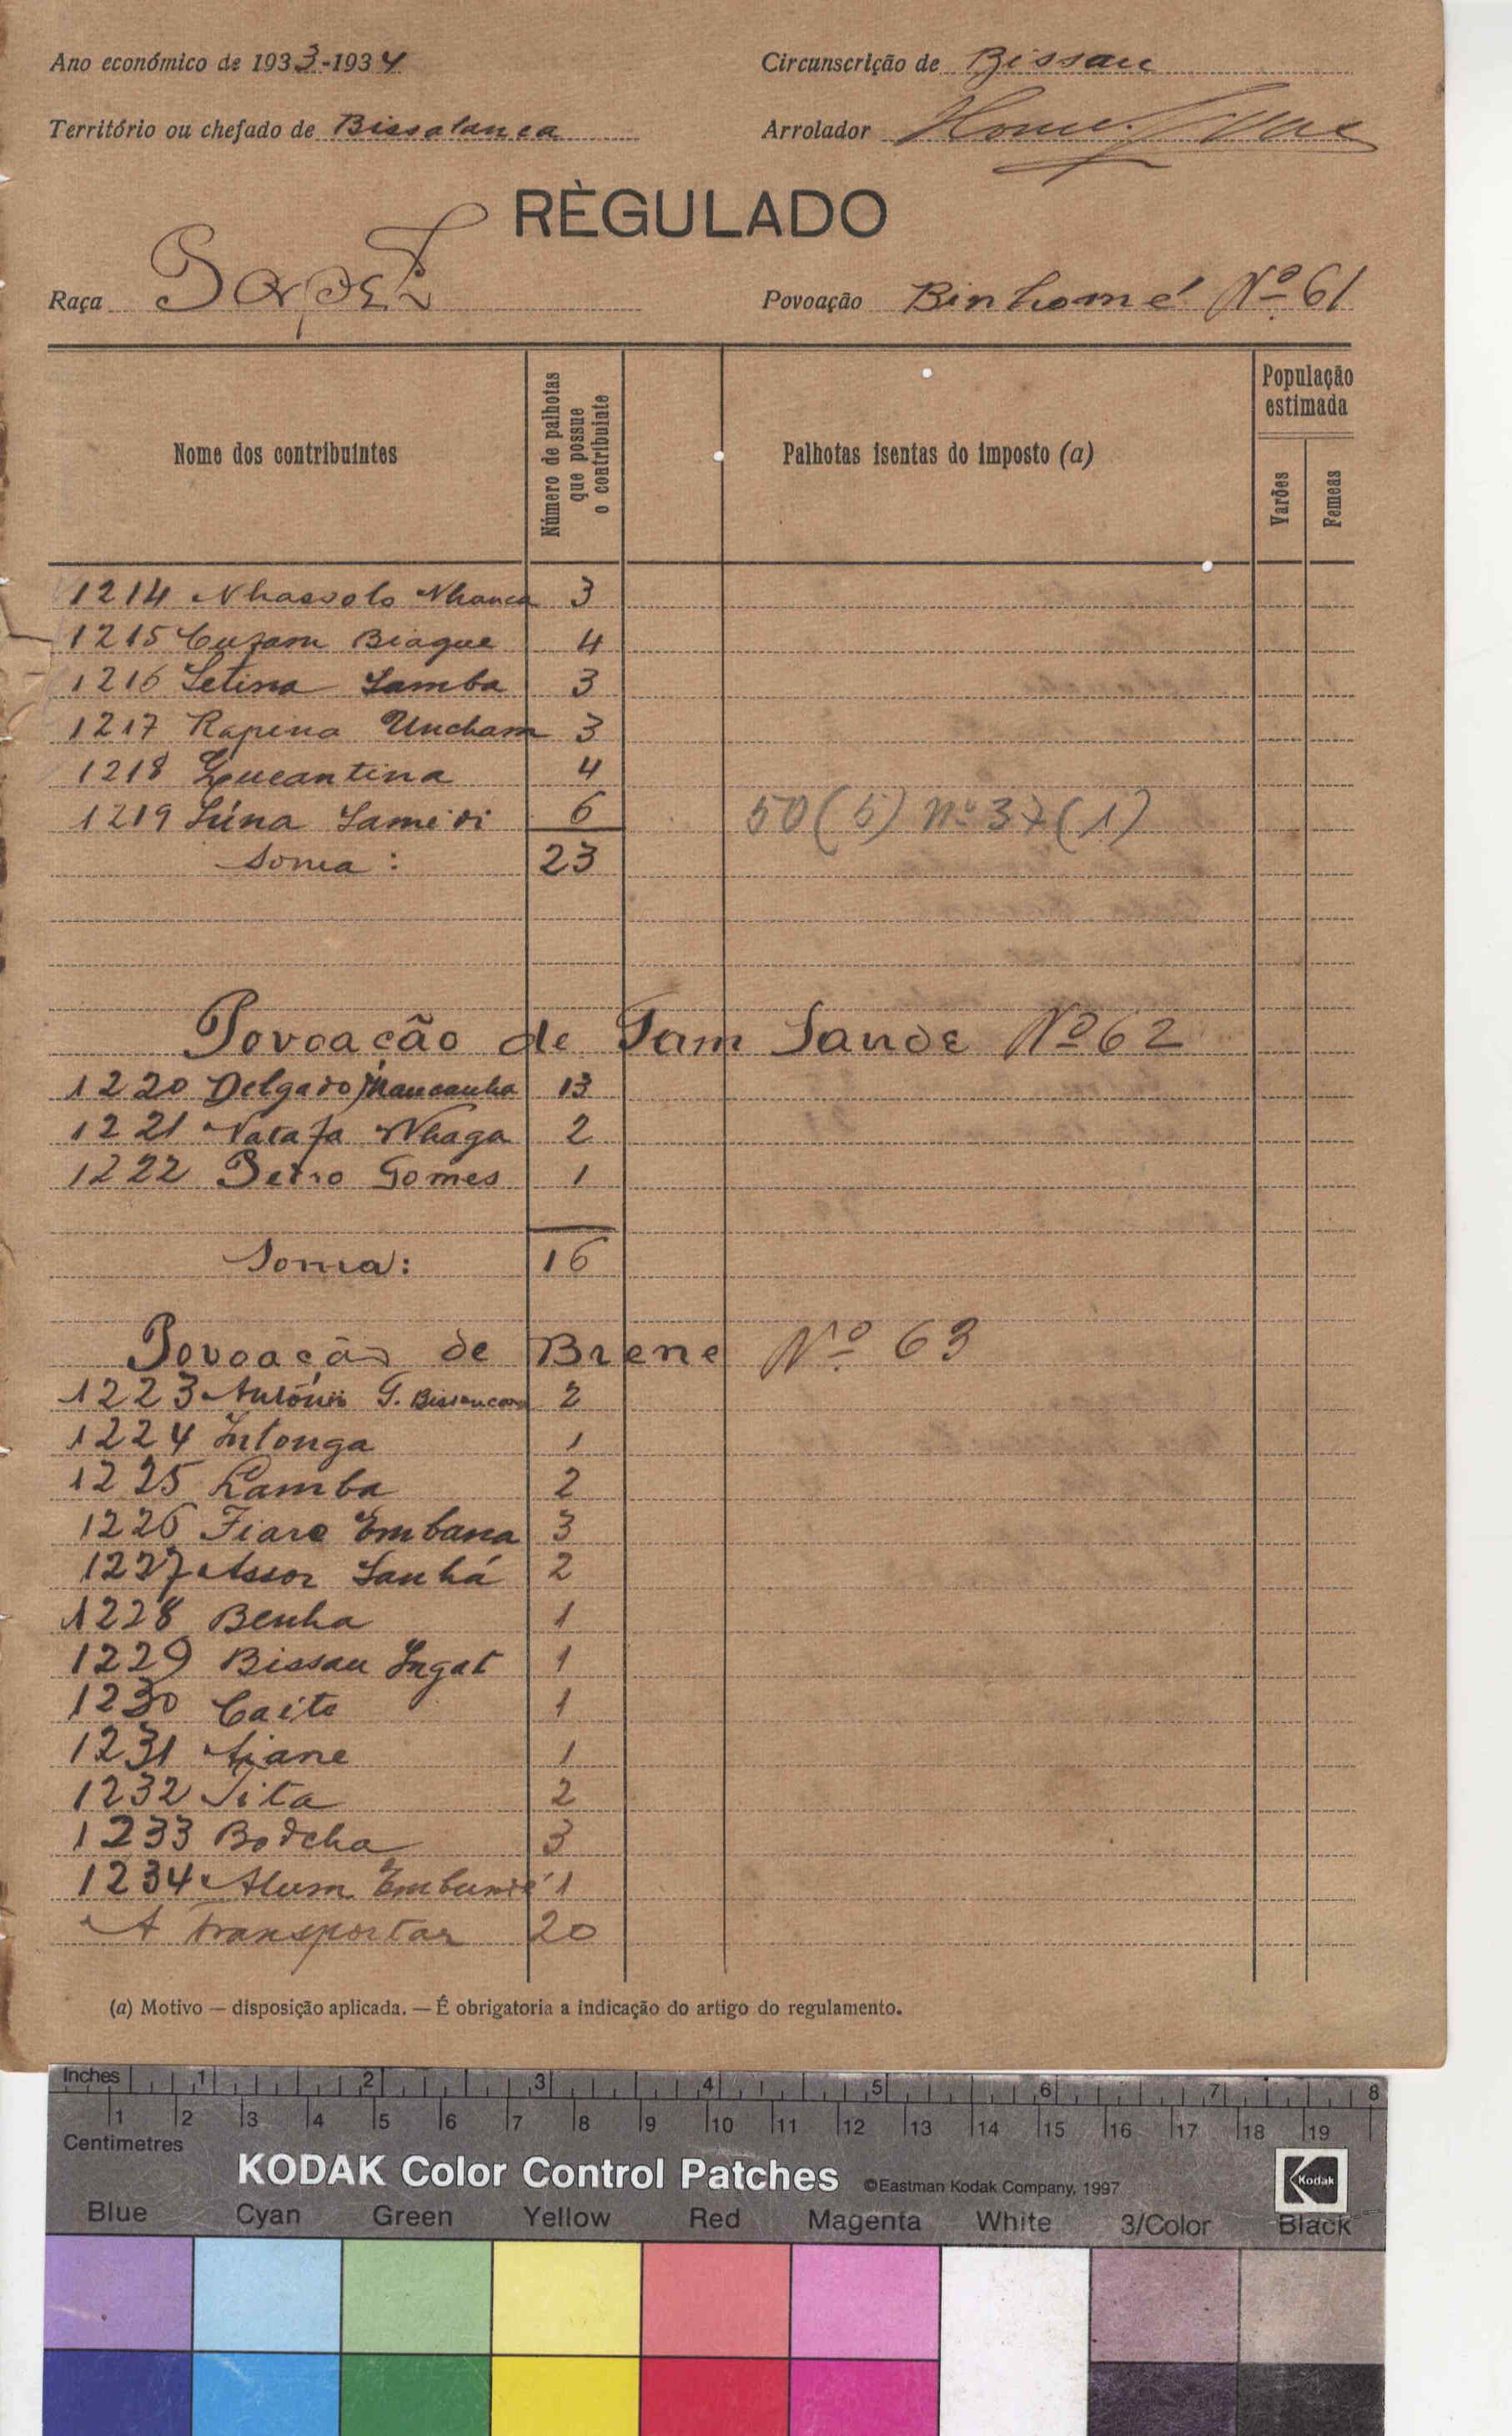 Ano económico de 1933-1934
Circunscrição de Bissau
Território ou chefado de Bissalanca
Arrolador
RÈGULADO
Raça Papel
Povoação Binhomé Nº 61
Nome dos contribuintes
Número de palhotas que possue o contribuinte
Palhotas isentas do imposto (a)
População estimada
Varões
Femeas
1214 Nhassolo Nhanca 3
1215 Cuzam Biague 4
1216 Setina Samba 3
1217 Rapena Uncham 3
1218 Lucantina 4
1219 Súna Sameidi 6 50(5) nº 37(1)
Soma: 23
Povoação de Tam Sande Nº 62
1220 Delgado Mancanha 13
1221 Natafa Nhaga 2
1222 Pedro Gomes 1
Soma: 16
Povoação de Brene Nº 63
1223 António G. 2
1224 Intonga 1
1225 Lamba 2
1226 Fiare Embana 3
1227 Assor Sanhá 2
1228 Benha 1
1229 Bissau Ingat 1
1230 Caite 1
1231 Aiane 1
1232 Sita 2
1233 Bodcha 3
1234 Alum Embundé 1
A transportar 20
(a) Motivo — disposição aplicada. — É obrigatoria a indicação do artigo do regulamento.
Inches 1 2 3 4 5 6 7 8
1 2 3 4 5 6 7 8 9 10 11 12 13 14 15 16 17 18 19
Centimetres
KODAK Color Control Patches ©Eastman Kodak Company, 1997 Kodak
Blue Cyan Green Yellow Red Magenta White 3/Color Black